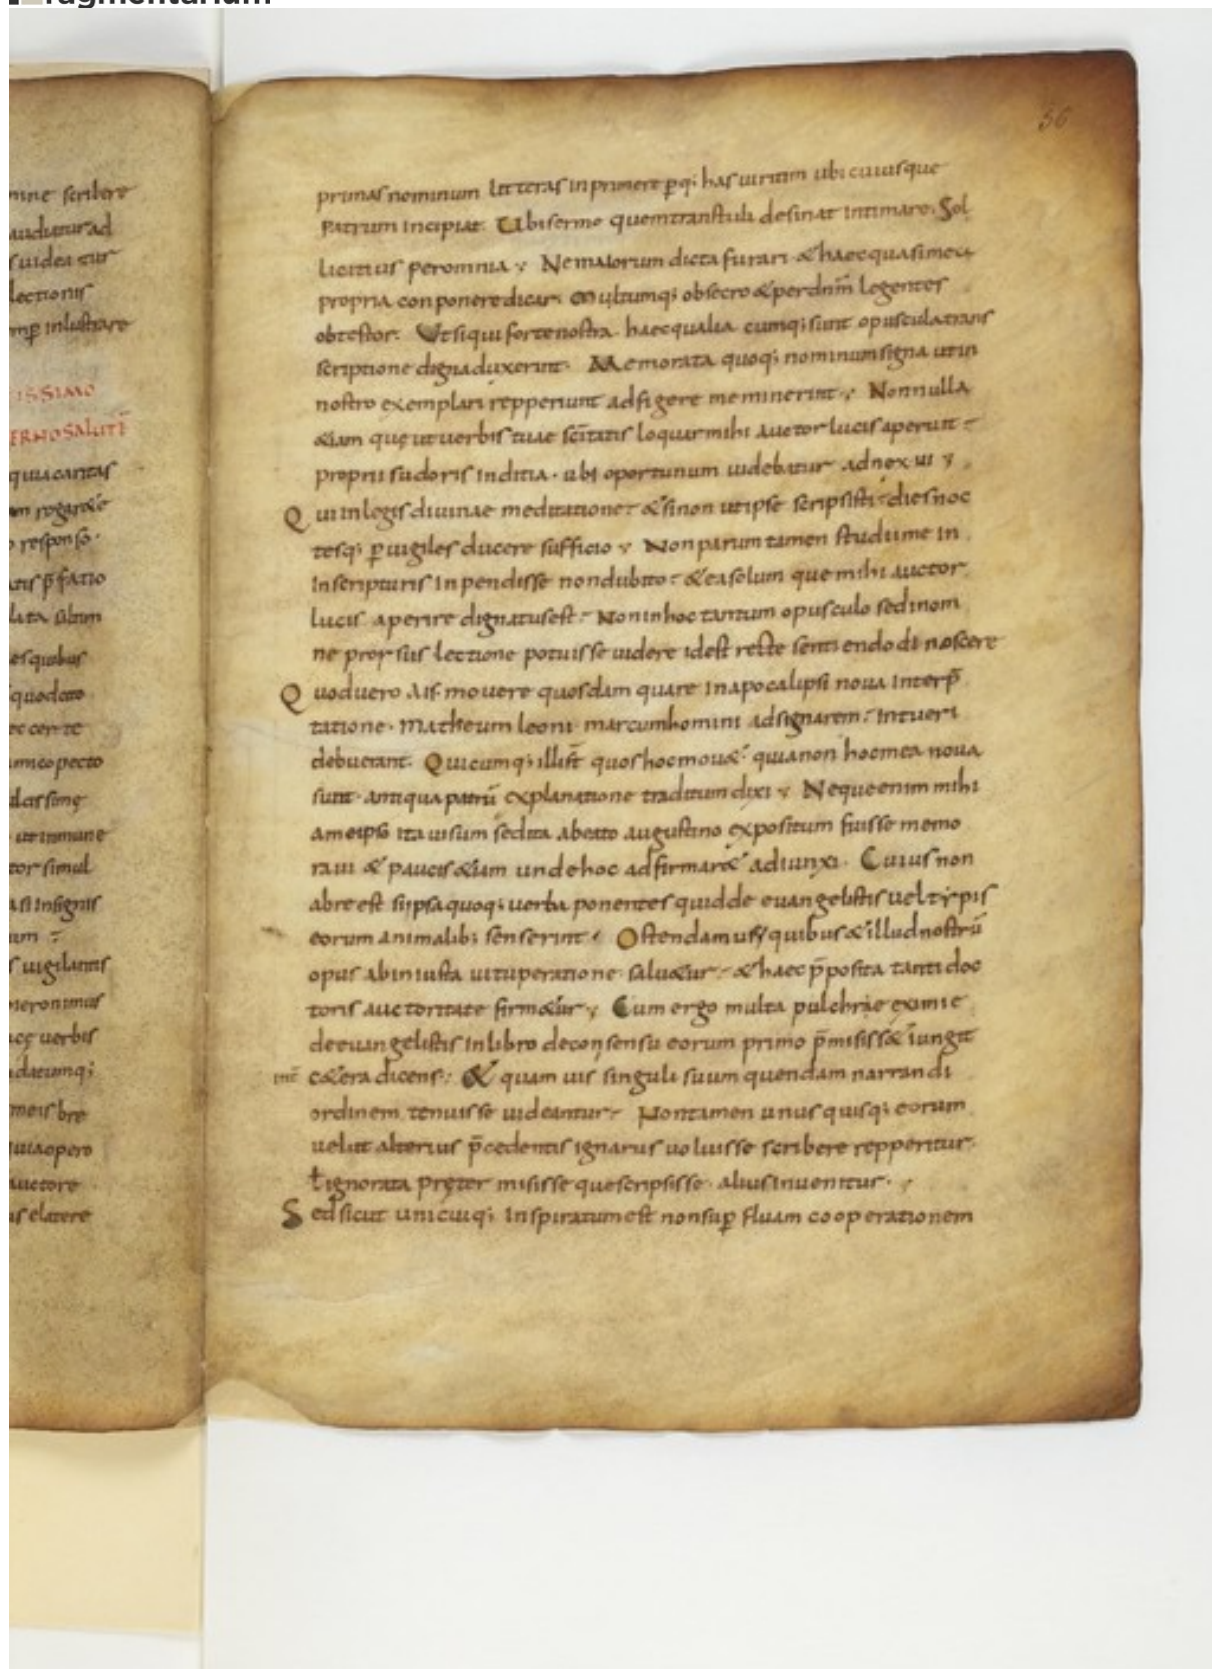 ragmentarium
nine scribere
audiatur ad
s uidea tur
lectionis
inlustrare
ISSIMO
ERNO SALUTĒ
quia caritas
m rogare
responso.
p̄fatio
es quibus
quodcto
pecto
ut inmune
tor simul
insignis
um :
s uigilantis
hieronimus
uerbis
datumq;
meis bre
quia opere
auctore
36
primas nominum litteras inprimere p̱q; has uiritim ubi cuiusque
patrum incipiat. Ubi sermo quem transtuli desinat intimare. Sol
licitius per omnia. Ne maiorum dicta furari & haec quasi mea
propria conponere dicar; Multumq; obsecro & per dn̄m legentes
obtestor. Ut si qui forte nostra haec qualia cumq; sunt opuscula trans
scriptione digna duxerint. Memorata quoq; nominum signa ut in
nostro exemplari repperiunt adfigere meminerint. Nonnulla
&iam quę ut uerbis tuae sc̄itatis loquar mihi auctor lucis aperuit
proprii sudoris inditia. ubi oportunum uidebatur adnexui
Qui in legis diuinae meditatione & si non ut ipse scripsisti dies noc
tesq; p̱uigiles ducere sufficio. Non parum tamen studii me in
in scripturis inpendisse non dubito. & ea solum que mihi auctor
lucis aperire dignatus est. Non in hoc tantum opusculo sed in om
ne prorsus lectione potuisse uidere id est recte sentiendo dinoscere
Quod uero ais mouere quosdam quare in apocalipsi noua interp̄
tatione. Matheum leoni marcum homini adsignarem. Intueri
debuerant. Quicumq; illi st̄ quos hoc mou& quia non hoc mea noua
sunt. antiqua patrū explanatione traditum dixi. Neque enim mihi
a me ipso ita uisum sed ita a beato augustino expositum fuisse memo
raui & paucis &iam unde hoc adfirmar& adiunxi. Cuius non
abre est si ipsa quoq; uerba ponentes quid de euangelistis uel typis
eorum animalib; senserint. Ostendamus quibus & illud nostrū
opus ab iniusta uituperatione salu&ur. & haec p̄posita tanti doc
toris auctoritate firm&ur. Cum ergo multa pulchrae eximie
de euangelistis in libro de consensu eorum primo p̄misiss& iungit
c&era dicens. & quam uis singuli suum quendam narrandi
ordinem tenuisse uideantur. Non tamen unus quisq; eorum
uelut alterius p̄cedentis ignarus uoluisse scribere repperitur.
ł ignorata pręter misisse que scripsisse alius inuenitur.
Sed sicut unicuiq; inspiratum est non sup̱ fluam cooperationem